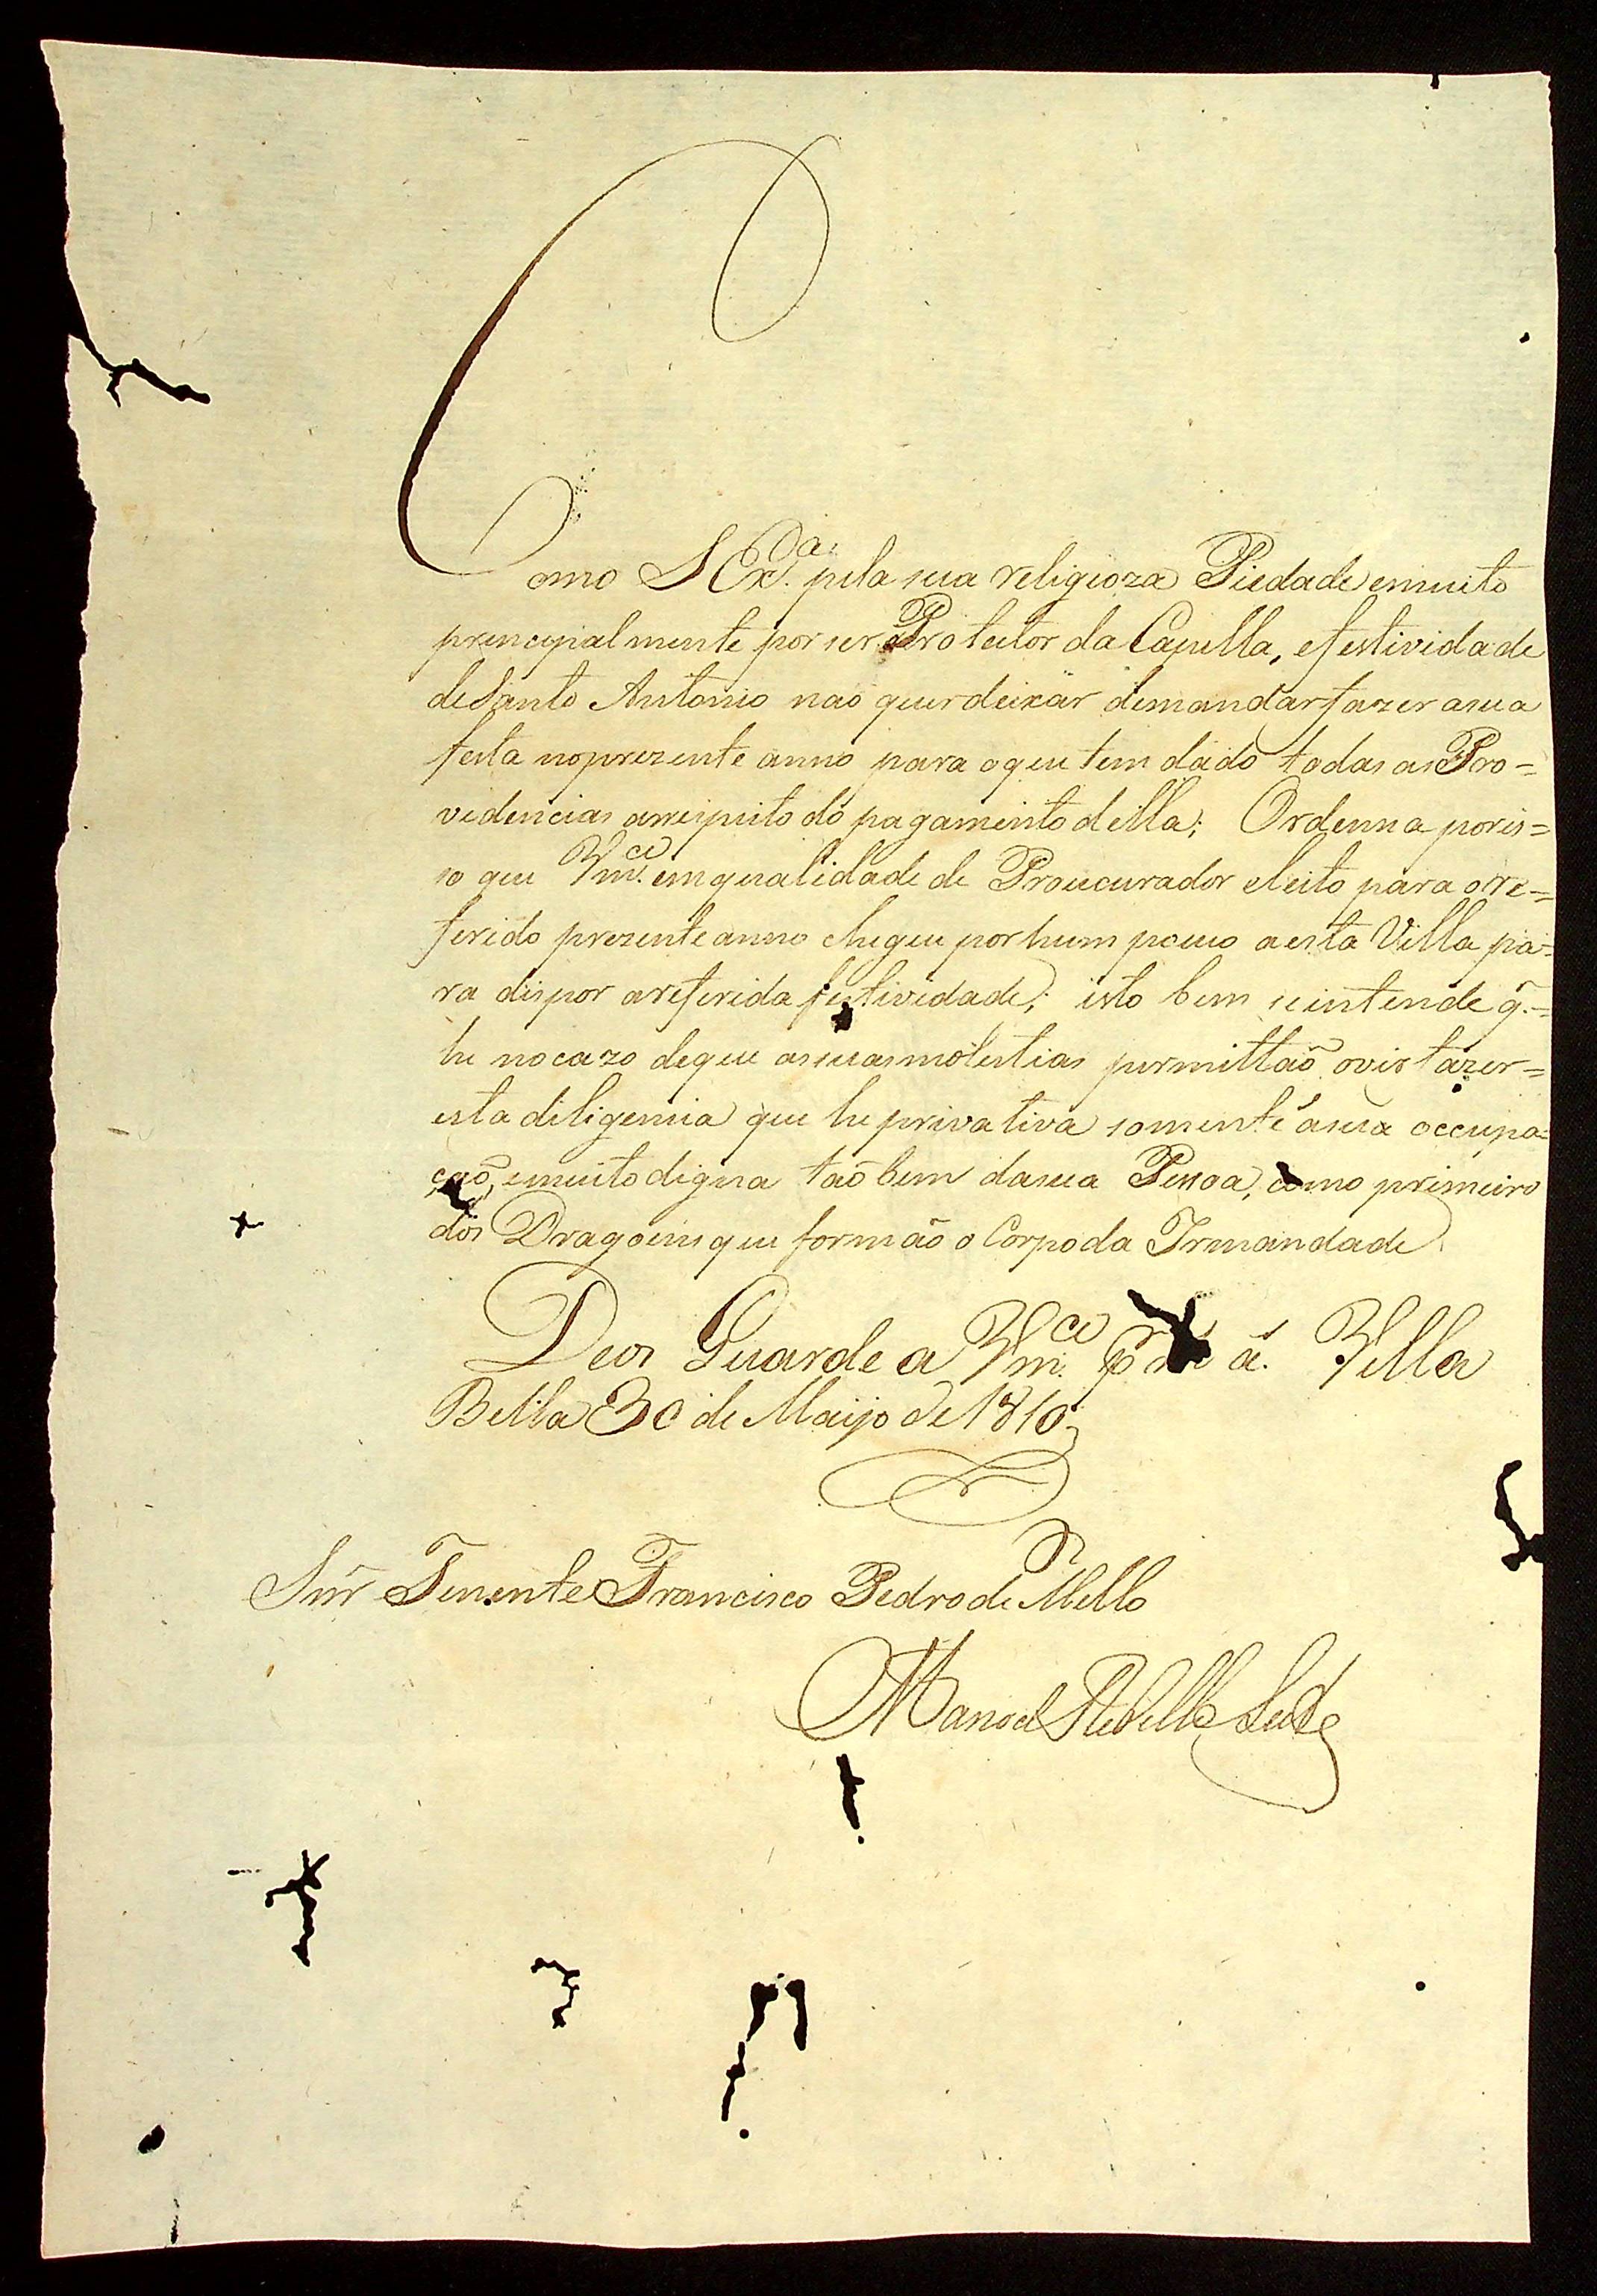 Como S Ex.ª pela sua religioza Piedade emuito
principialmente por ser Protector da Capella, efestividade
deSanto Antonio naõ querdeixar demandarfazer asua
festa noprezente anno para oque tem dado todas as Pro=
videncias arrespeito do pagamento della; Ordenna poris=
so que Vm.ce emqualidade de Proucurador eleito para orre=
ferido prezente anno chegue porhum pouco a esta Villa pa=
ra dispor areferida festividade; isto bem seintende q.=
he nocazo deque assuasmolestias permittaõ o vir fazer=
esta diligencia que he privativa somente ásua occupa=
çaõ, emuito digna taõ bem dasua Pessoa, como primeiro
dos Dragoens que formão o Corpo da Irmandade.
Deos Guarde a Vm.ce p.r m.s a.s Villa
Bella 30 de Maijo de 1810
Snr Tenente Francisco Pedro de Mello
Manoel Rebello Leite